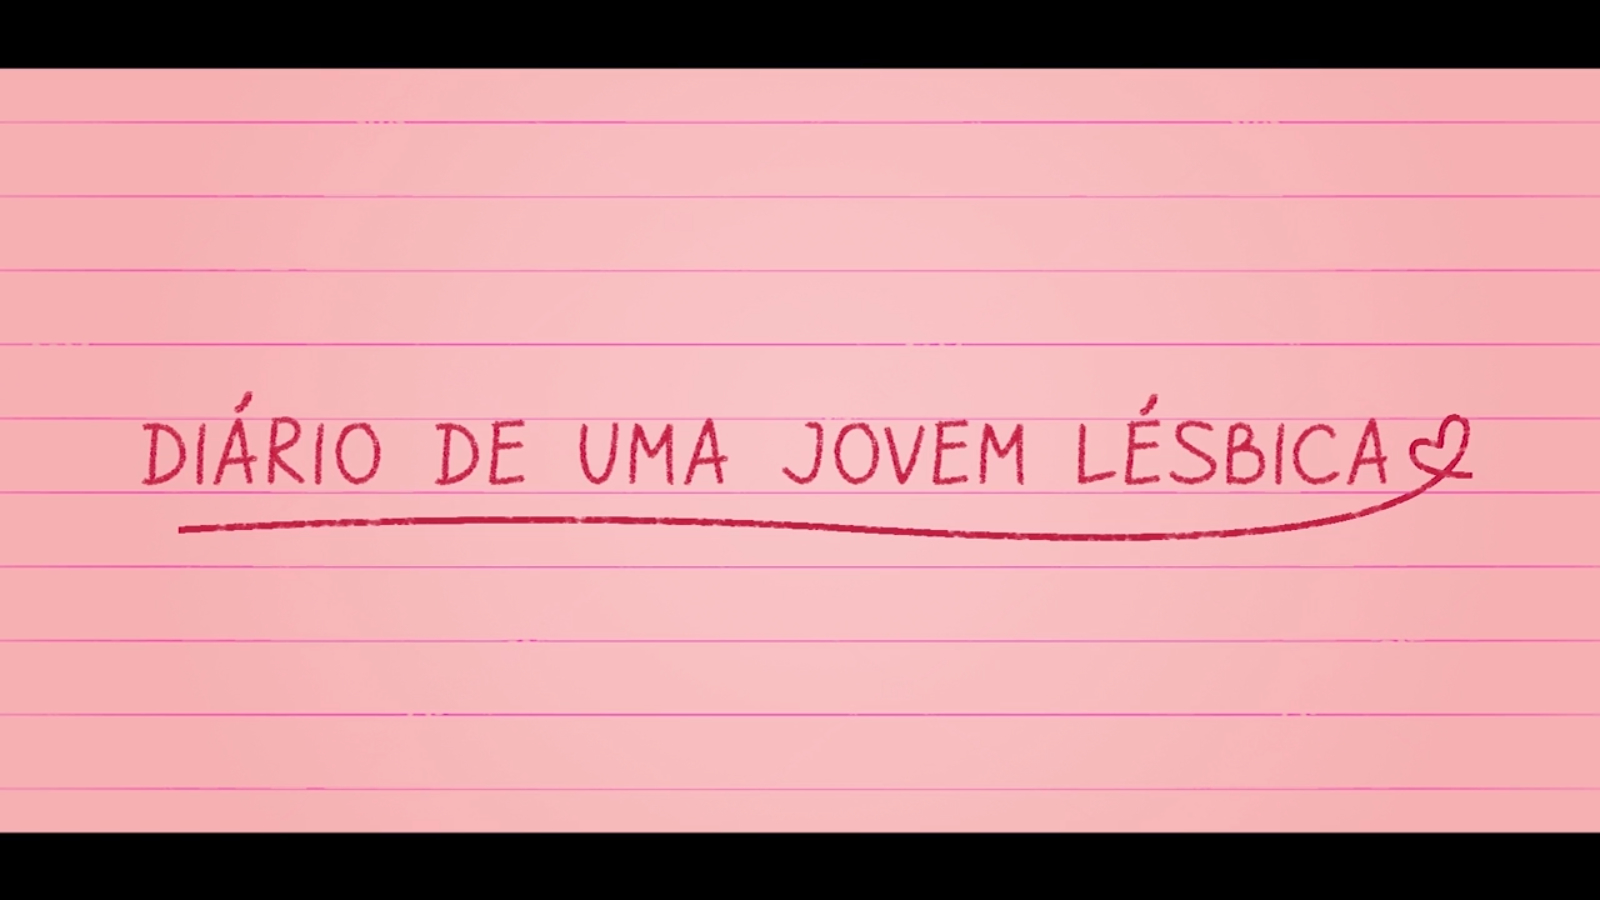 DIÁRIO DE UMA JOVEM LÉSBICA